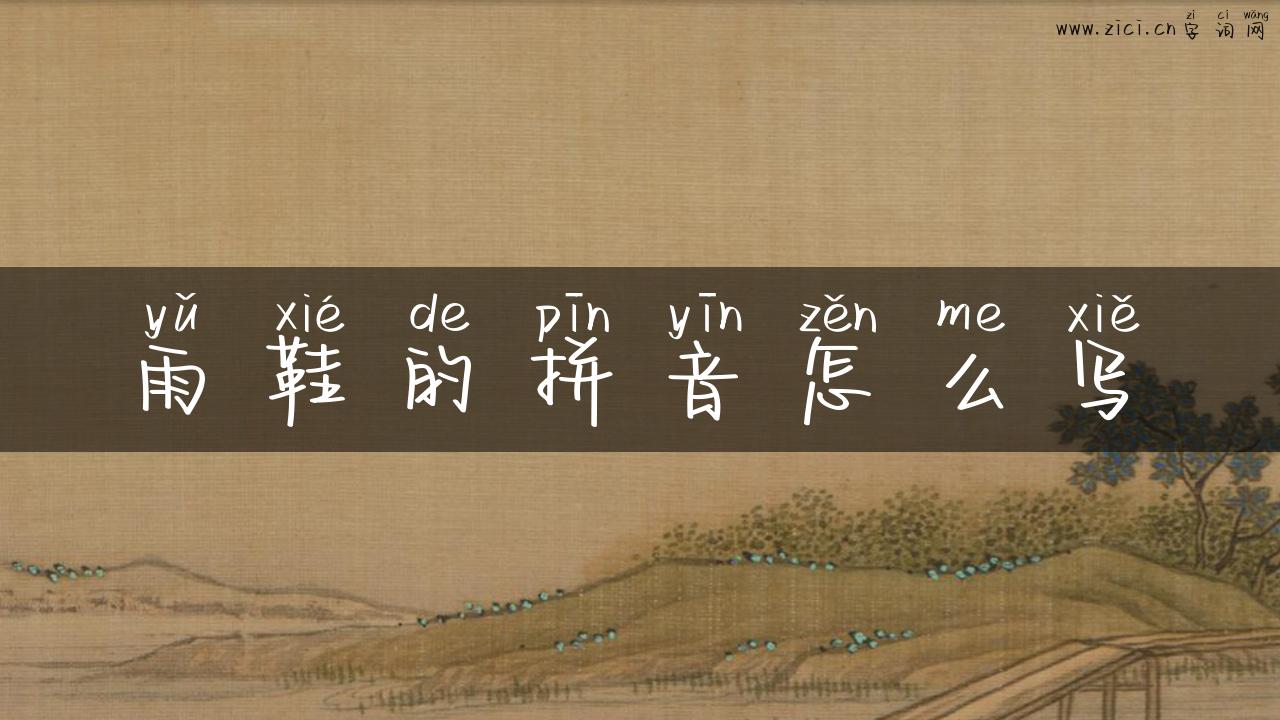 zì cí wǎng
www.zici.cn 字词网
yǔ xié de pīn yīn zěn me xiě
雨鞋的拼音怎么写